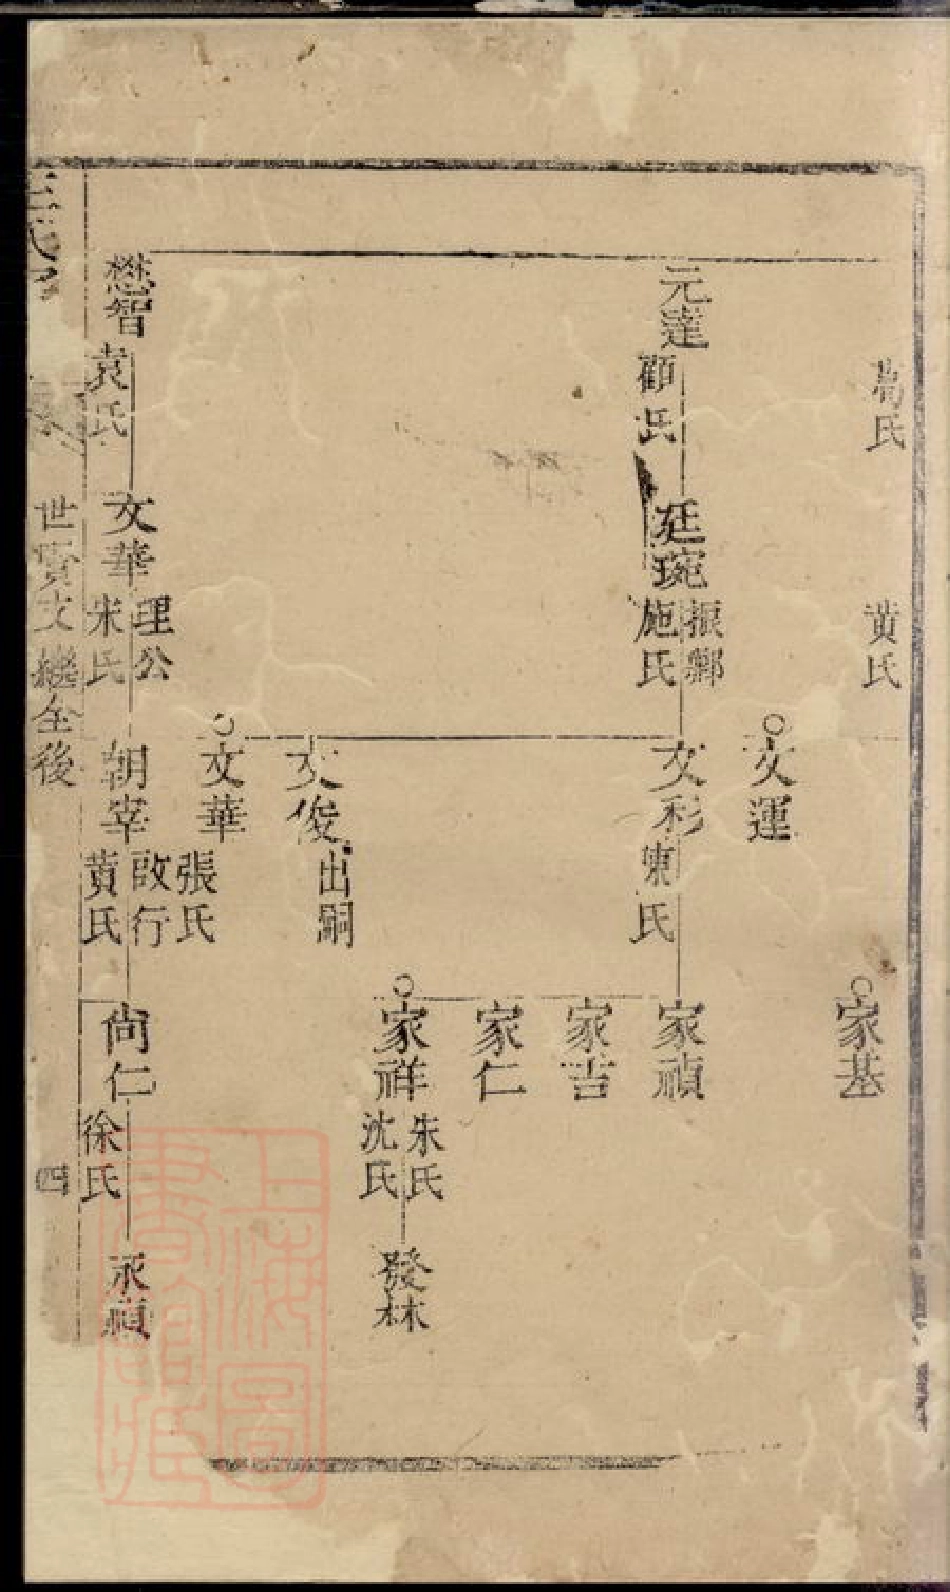 高氏
黄氏
家基
文運
元達
顧氏
廷琬
振鄰
施氏
文彩
東氏
家禎
家吉
家仁
家祥
朱氏
沈氏
發林
文俊
出嗣
文華
張氏
懋智
袁氏
文華
理公
朱氏
朝宰
啟行
黄氏
尚仁
徐氏
承禎
世實文繼全後
四
上海圖
書館藏